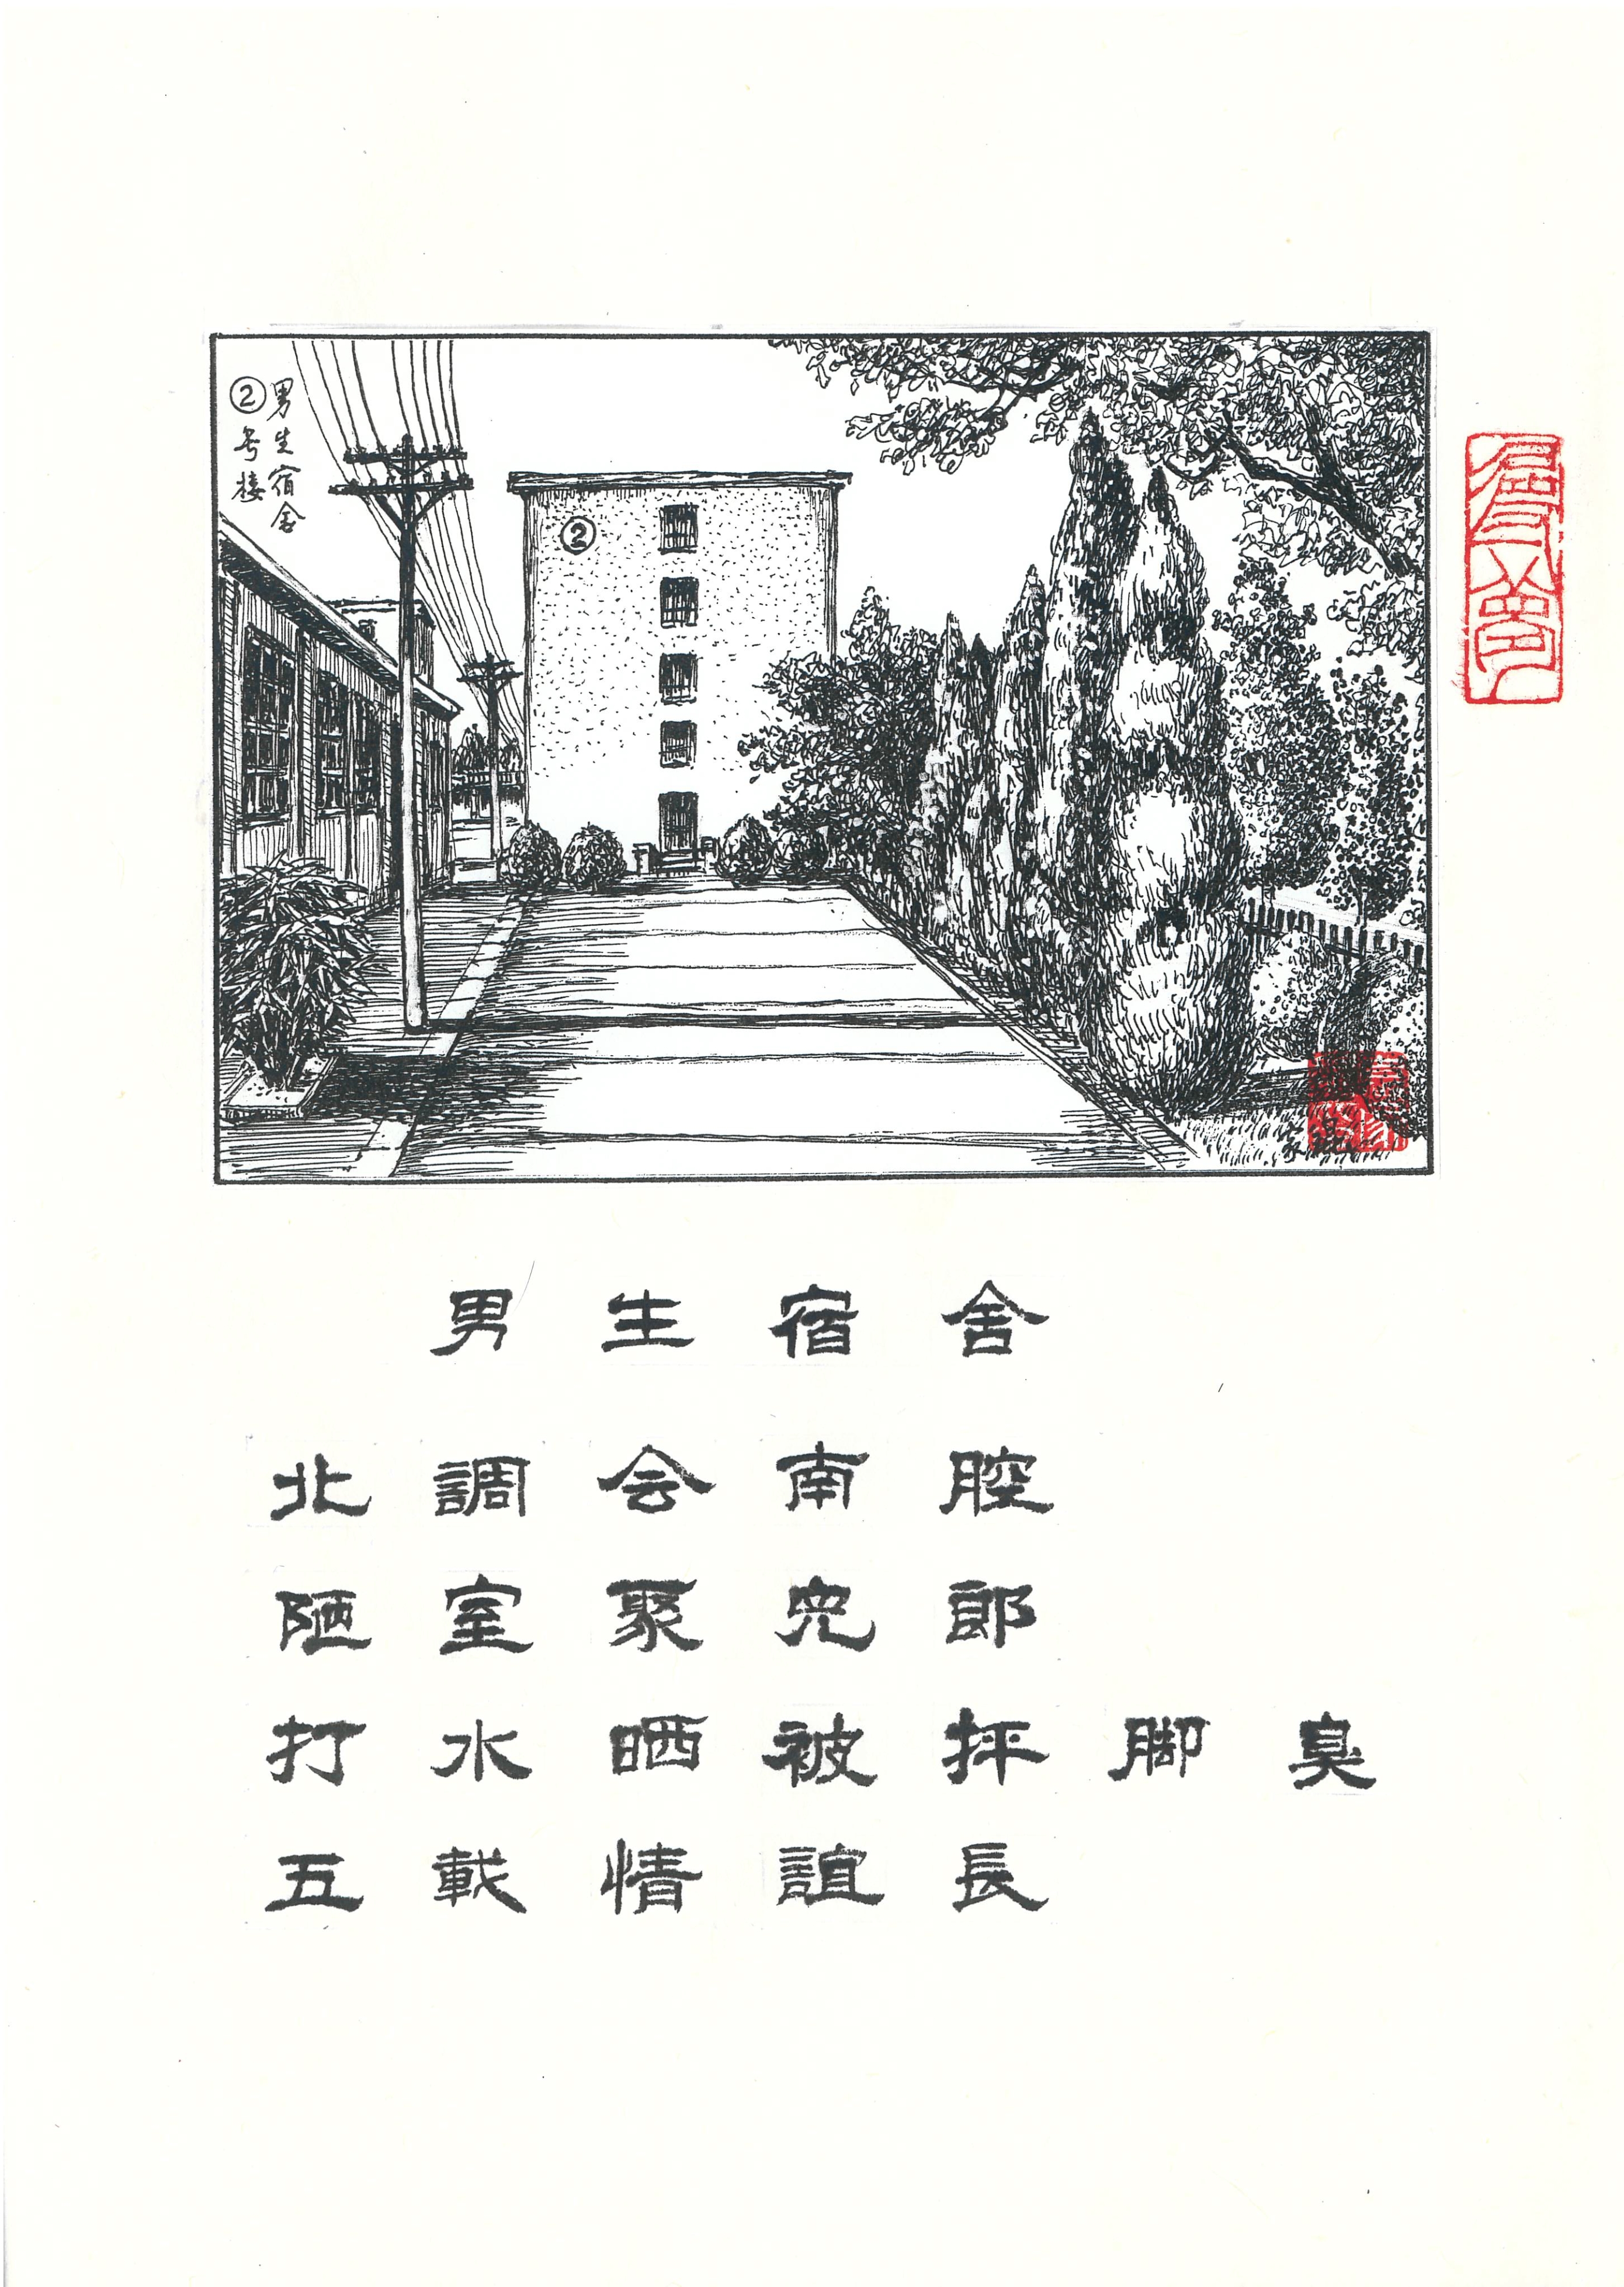 男生宿舍
②号楼
②
男生宿舍
北調会南腔
陋室聚児郎
打水晒被抨脚臭
五載情誼長